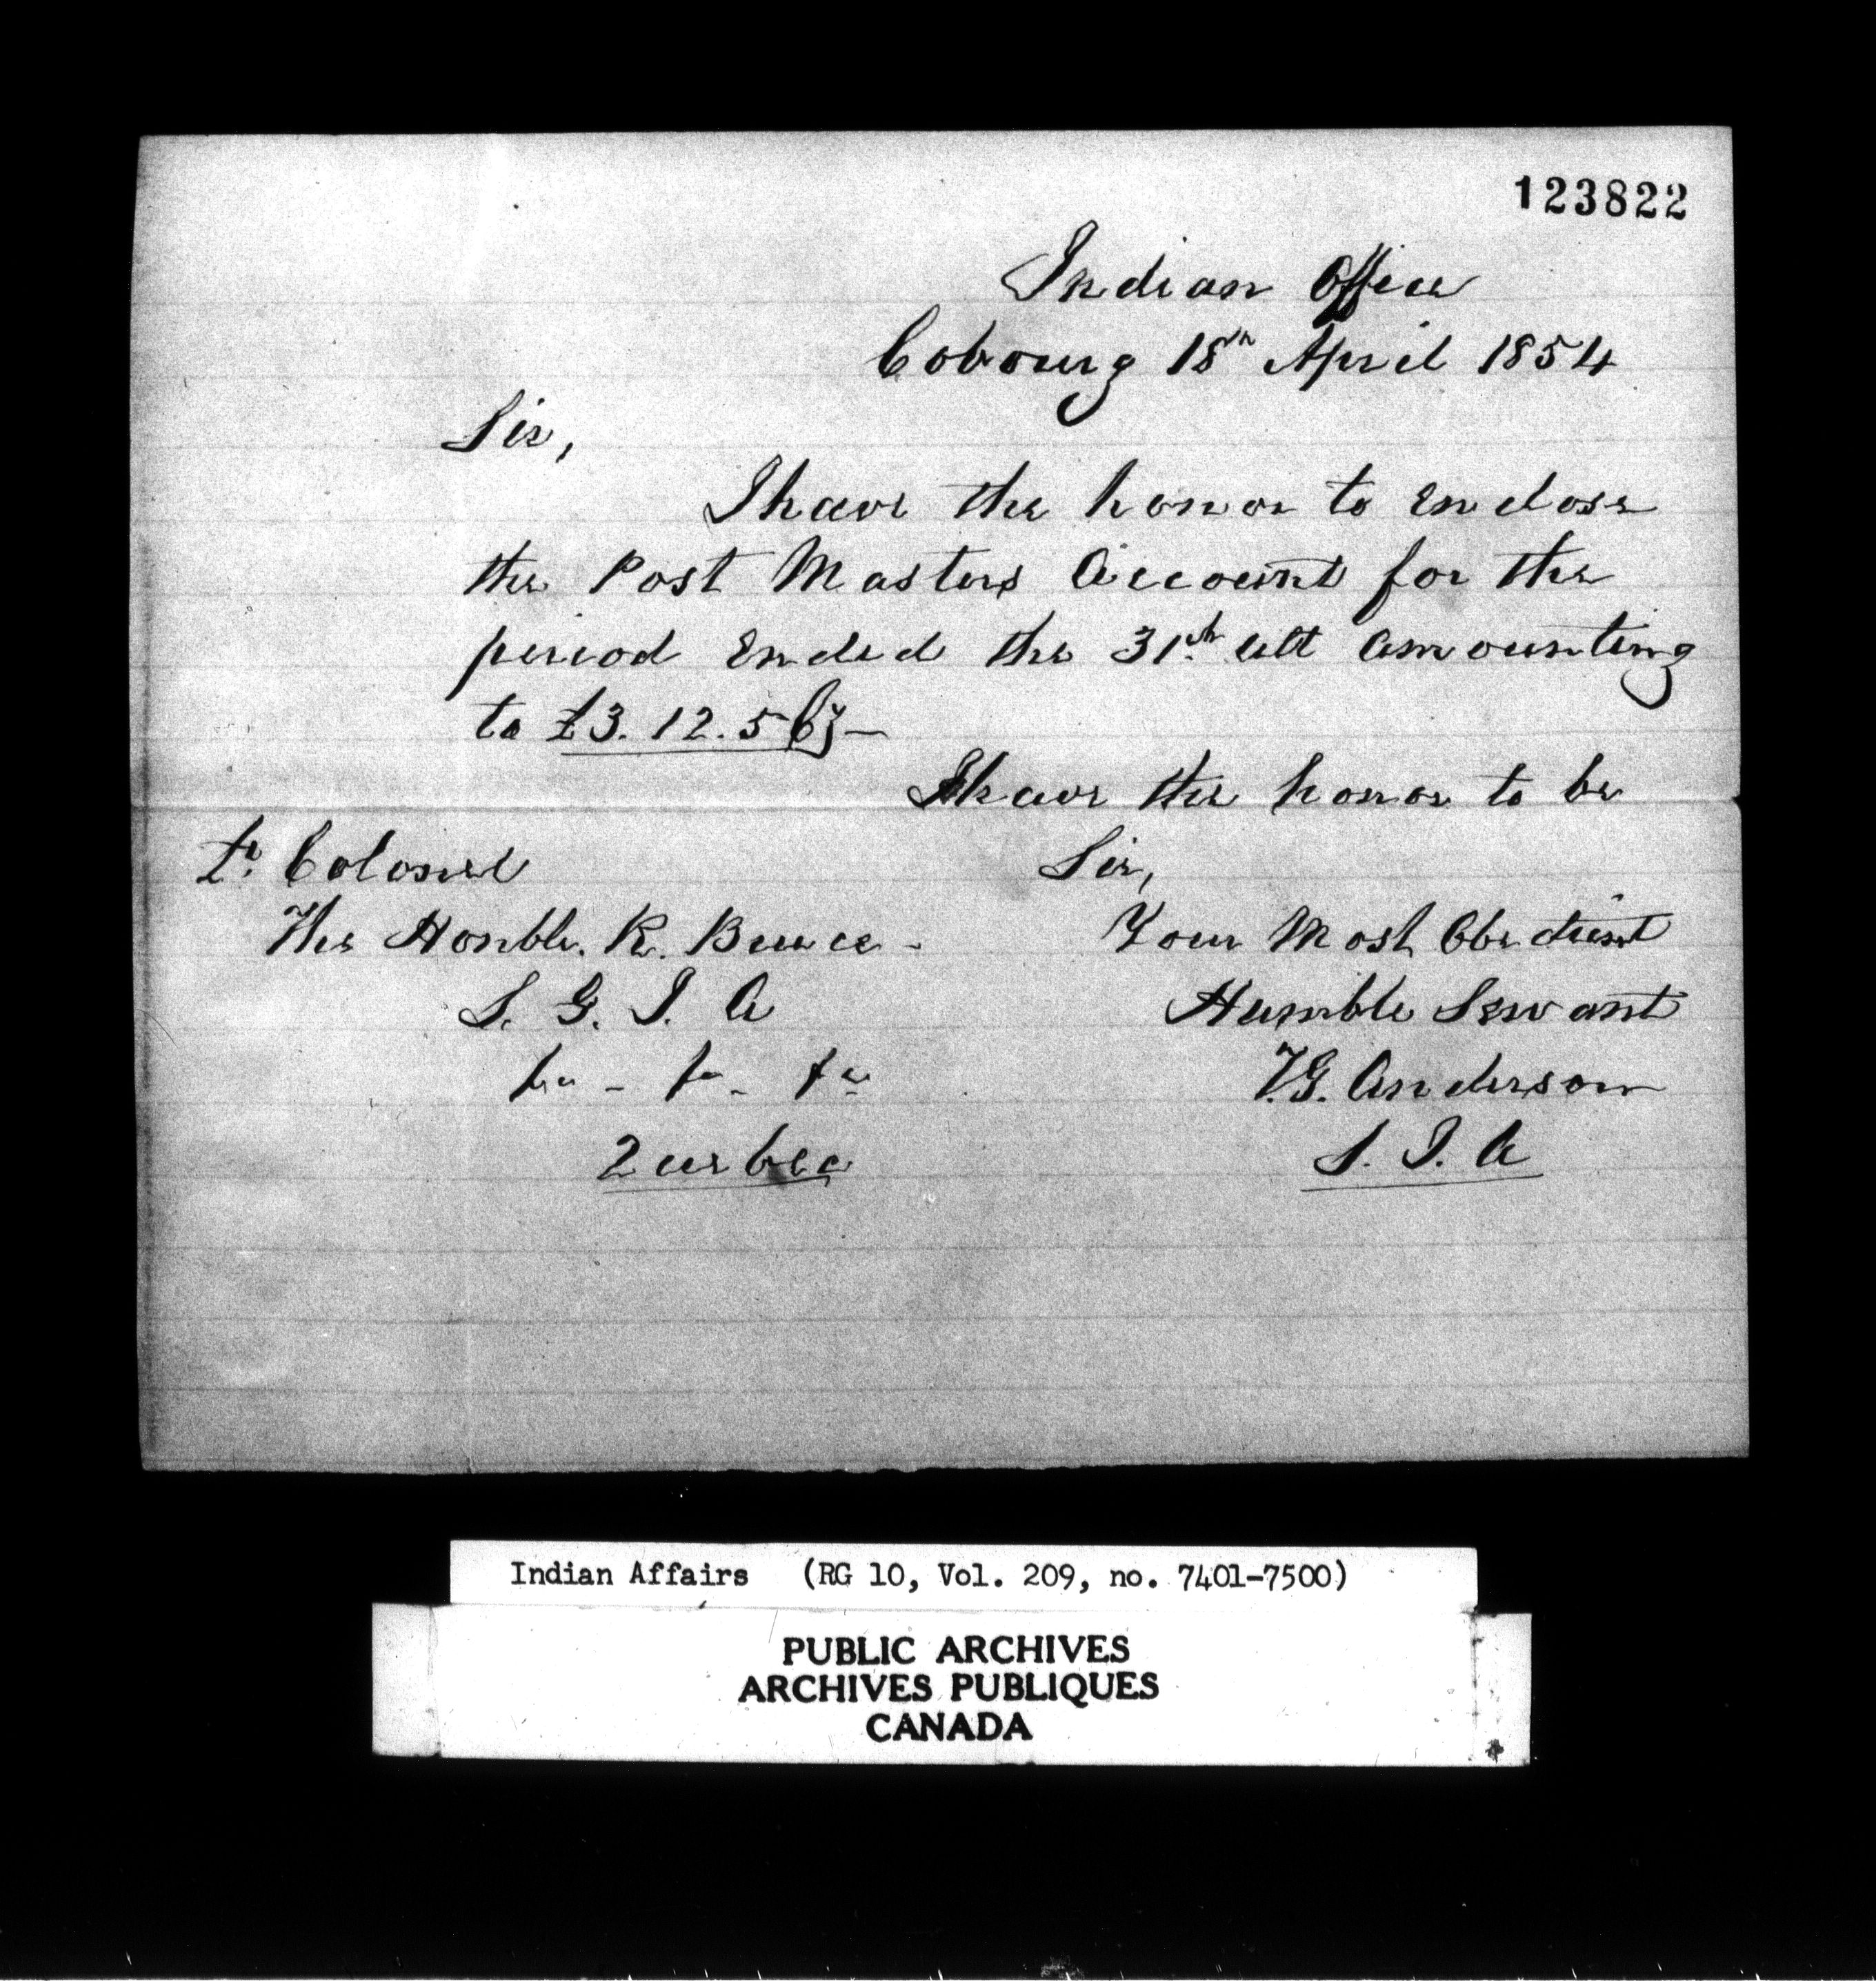 123822
Indian Office
Cobourg 18th April 1854
Sir,
I have the honor to enclose
the Post Masters Account for the
period Ended the 31th ult amounting
to £3. 12. 5 Cy—
I have the honor to be
Sir,
Lt. Colonel
The Honble. R. Bruce -
S. G. I. A
&c - &c - &c
Quebec
Your Most Obedient
Humble Servant
T.G. Anderson
S. I. A
Indian Affairs (RG 10, Vol. 209, no. 7401-7500)
PUBLIC ARCHIVES
ARCHIVES PUBLIQUES
CANADA